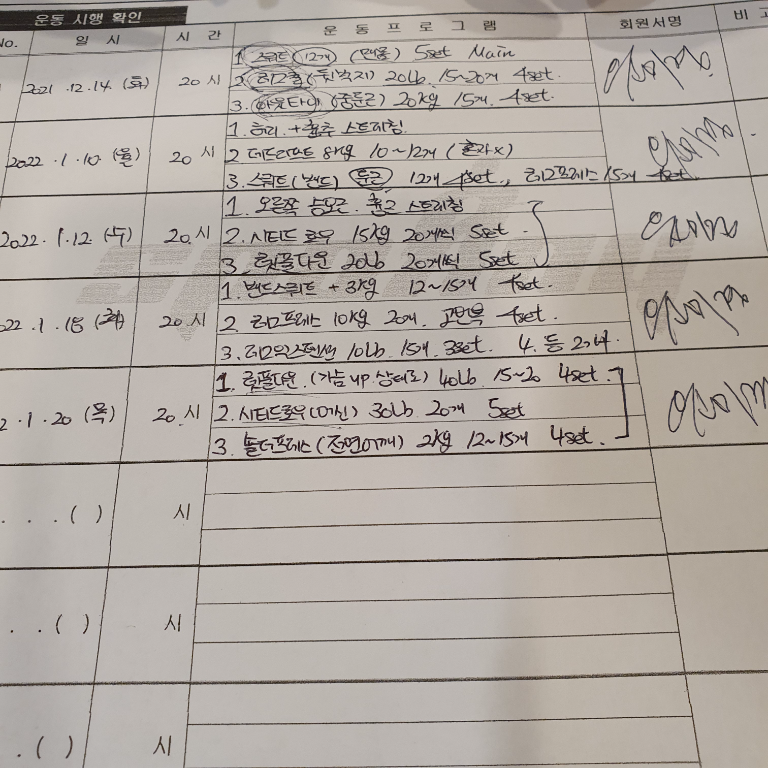 운동 시행 확인
No. 일 시 시 간 운 동 프 로 그 램 회원서명 비 고
1. 스쿼트 (12개) (맨몸) 5set Main
2021. 12. 14. (화) 20 시 2. 레그컬 (뒷벅지) 20lb. 15~20개 4set
3. 아웃타이 (중둔근) 20kg 15개. 4set.
1. 허리 + 척추 스트레칭
2022. 1. 10 (월) 20 시 2. 데드리프트 8kg 10~12개 (혼자x)
3. 스쿼트 (밴드) 둔근 12개 4set., 레그프레스 15개 4set
1. 오른쪽 승모근. 스트레칭
2022. 1. 12. (수) 20. 시 2. 시티드 로우 15kg 20개씩 5set.
3. 랫풀다운 20lb 20개씩 5set
1. 밴드스쿼트 + 3kg 12~15개 4set.
22. 1. 18 (화) 20 시 2. 레그프레스 10kg 20개. 4set.
3. 레그익스텐션 10lb. 15개. 3set. 4. 등
1. 랫풀다운. (가슴 up 상태로) 40lb. 15~20 4set.
2. 1. 20 (목) 20. 시 2. 시티드로우 (머신) 30lb 20개 5set
3. 숄더프레스 (전면어깨) 2kg 12~15개 4set.
. . . ( ) 시
. . ( ) 시
. ( ) 시